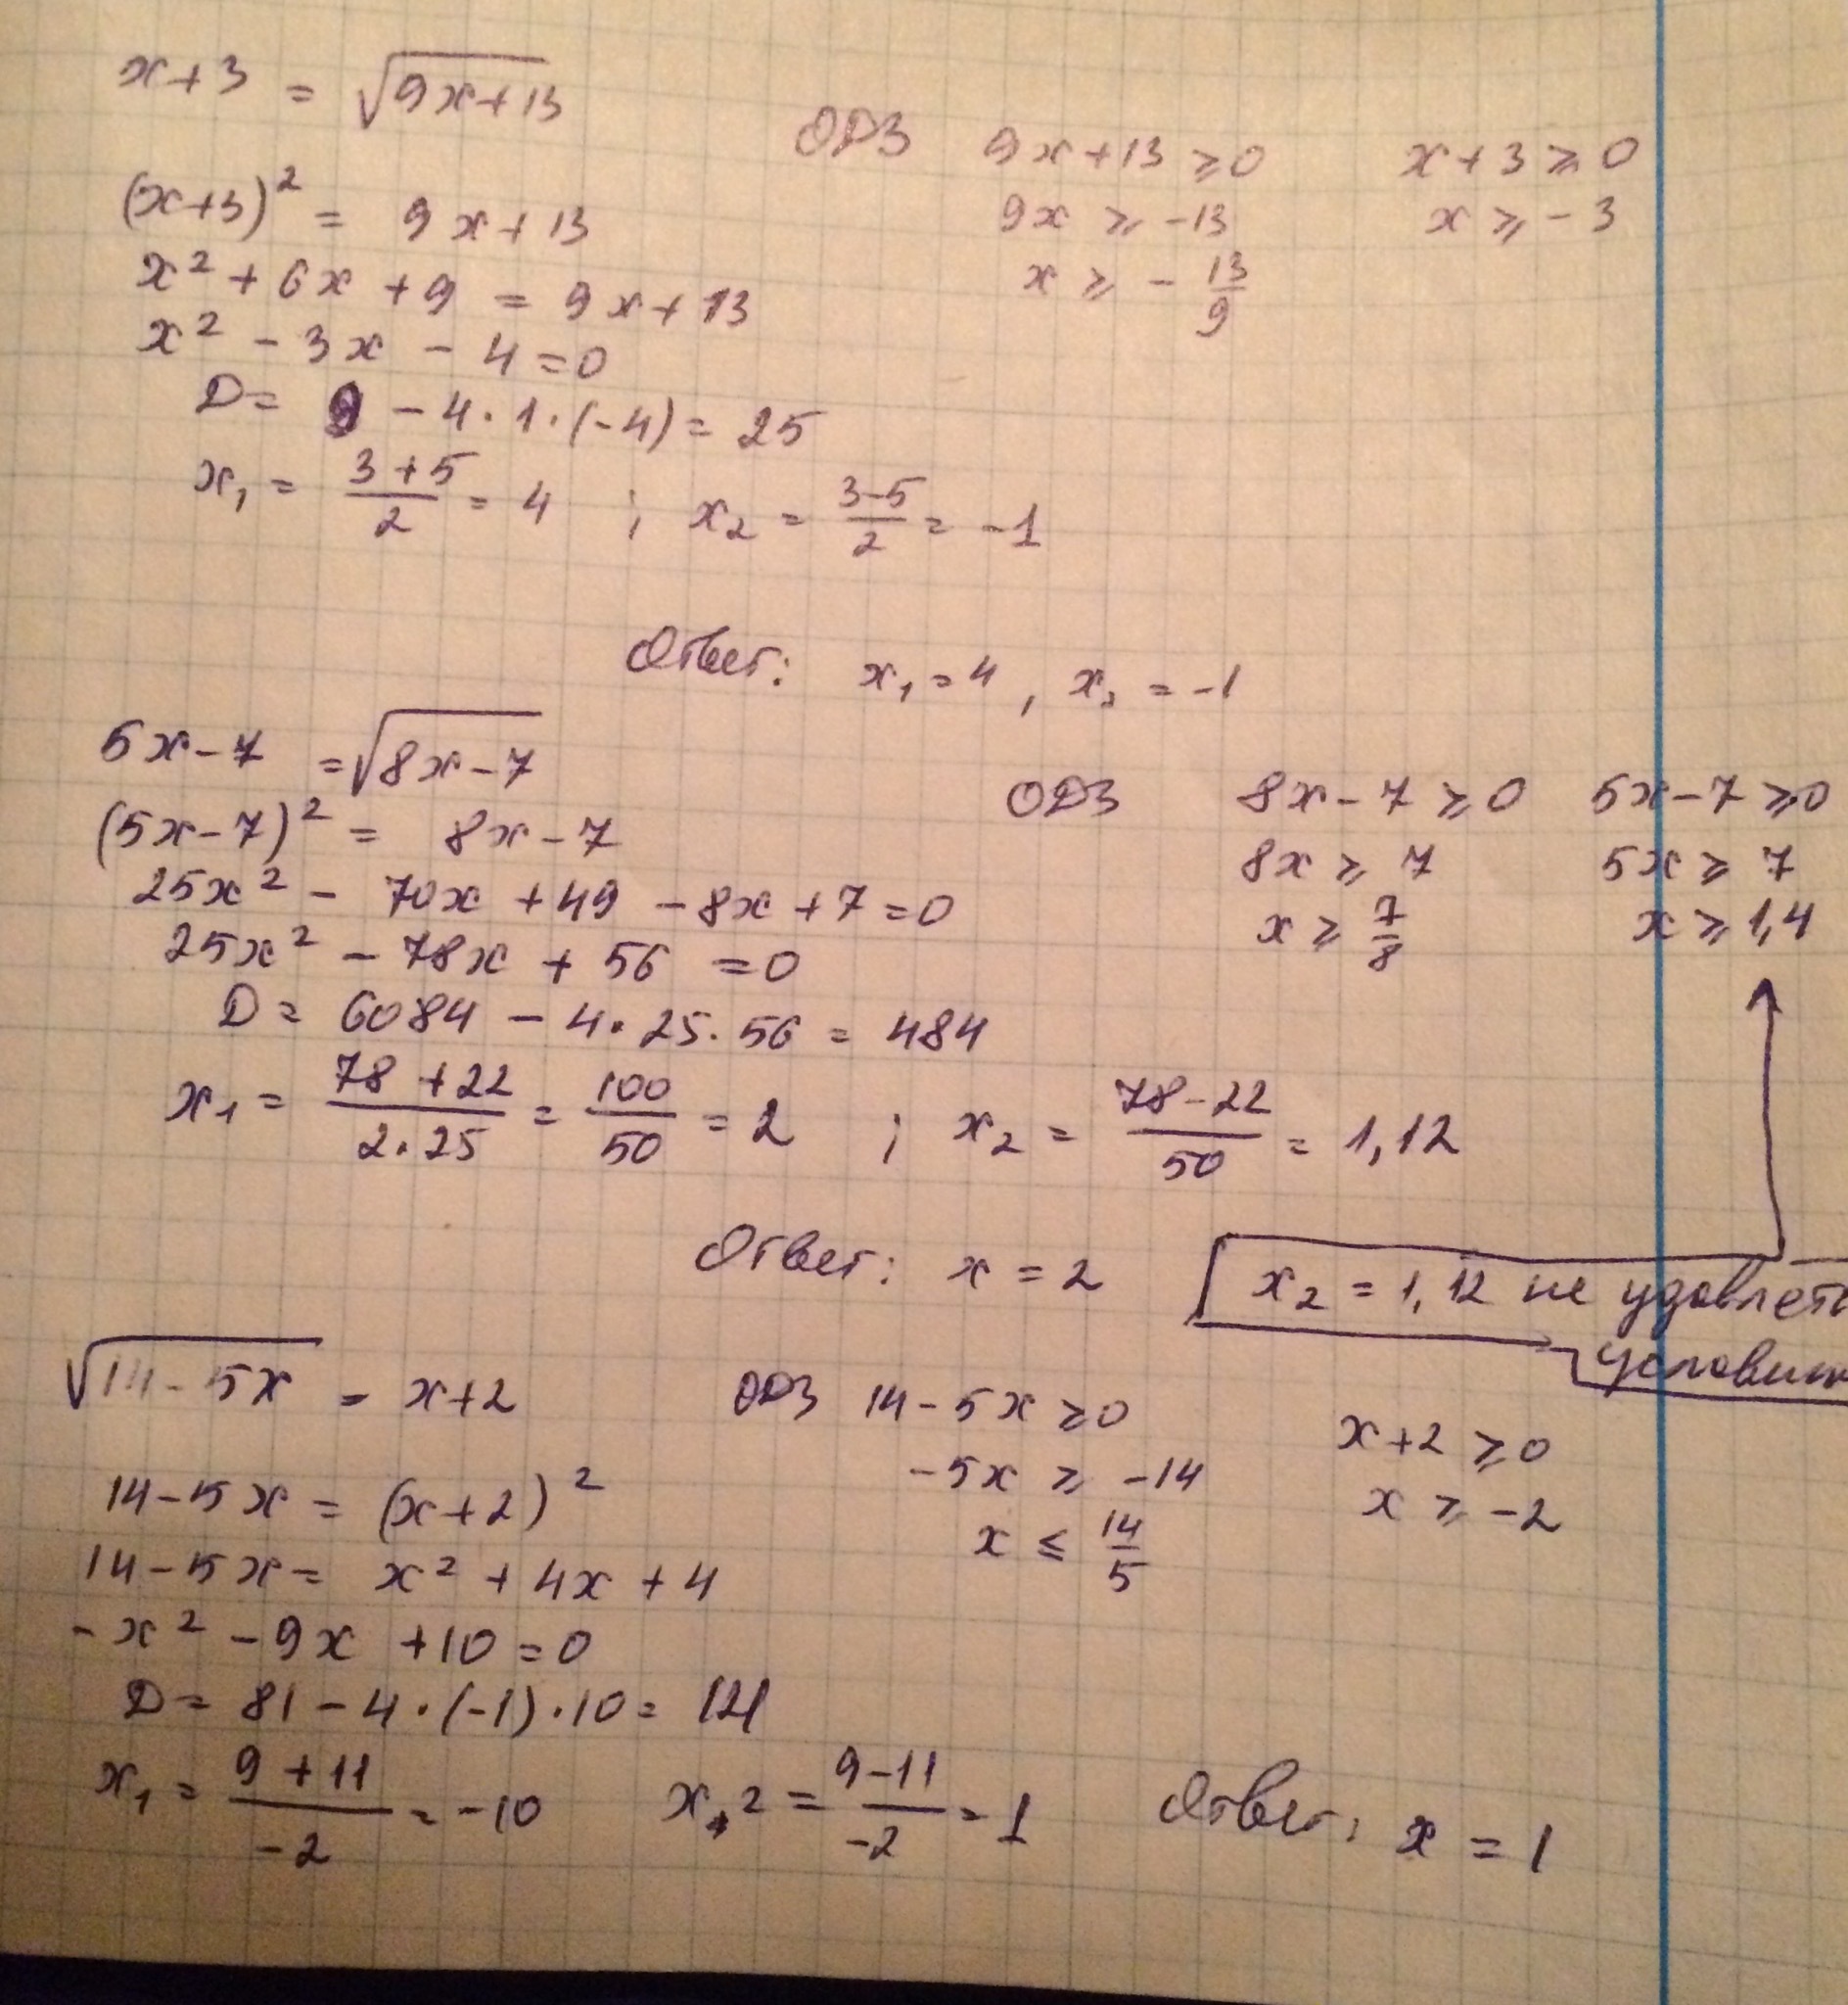 x+3 = √(9x+13)
ОДЗ 9x+13 ≥ 0 x+3 ≥ 0
(x+3)² = 9x+13
9x ≥ -13 x ≥ -3
x² + 6x + 9 = 9x+13
x ≥ - 13/9
x² - 3x - 4 = 0
D = 9 - 4·1·(-4) = 25
x₁ = (3+5)/2 = 4 ; x₂ = (3-5)/2 = -1
Ответ: x₁ = 4, x₂ = -1
5x-7 = √(8x-7)
ОДЗ 8x-7 ≥ 0 5x-7 ≥ 0
(5x-7)² = 8x-7
8x ≥ 7 5x ≥ 7
25x² - 70x + 49 - 8x + 7 = 0
x ≥ 7/8 x ≥ 1,4
25x² - 78x + 56 = 0
D = 6084 - 4·25·56 = 484
x₁ = (78+22)/(2·25) = 100/50 = 2 ; x₂ = (78-22)/50 = 1,12
Ответ: x = 2
x₂ = 1,12 не удовлетв
условию
√(14-5x) = x+2
ОДЗ 14-5x ≥ 0 x+2 ≥ 0
-5x ≥ -14 x ≥ -2
14-5x = (x+2)²
x ≤ 14/5
14-5x = x² + 4x + 4
-x² - 9x + 10 = 0
D = 81 - 4·(-1)·10 = 121
x₁ = (9+11)/-2 = -10 x₂ = (9-11)/-2 = 1 Ответ: x = 1